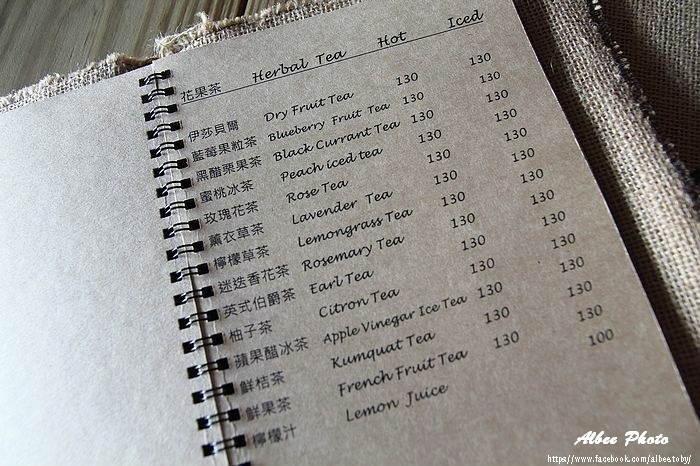 花果茶 Herbal Tea Hot Iced
伊莎貝爾 Dry Fruit Tea 130 130
藍莓果粒茶 Blueberry Fruit Tea 130 130
黑醋栗果茶 Black Currant Tea 130 130
蜜桃冰茶 Peach iced tea 130 130
玫瑰花茶 Rose Tea 130 130
薰衣草茶 Lavender Tea 130 130
檸檬草茶 Lemongrass Tea 130 130
迷迭香花茶 Rosemary Tea 130 130
英式伯爵茶 Earl Tea 130 130
柚子茶 Citron Tea 130 130
蘋果醋冰茶 Apple Vinegar Ice Tea 130 130
鮮桔茶 Kumquat Tea 130 130
鮮果茶 French Fruit Tea 130 130
檸檬汁 Lemon Juice 100
Albee Photo
https://www.facebook.com/albeetoby/